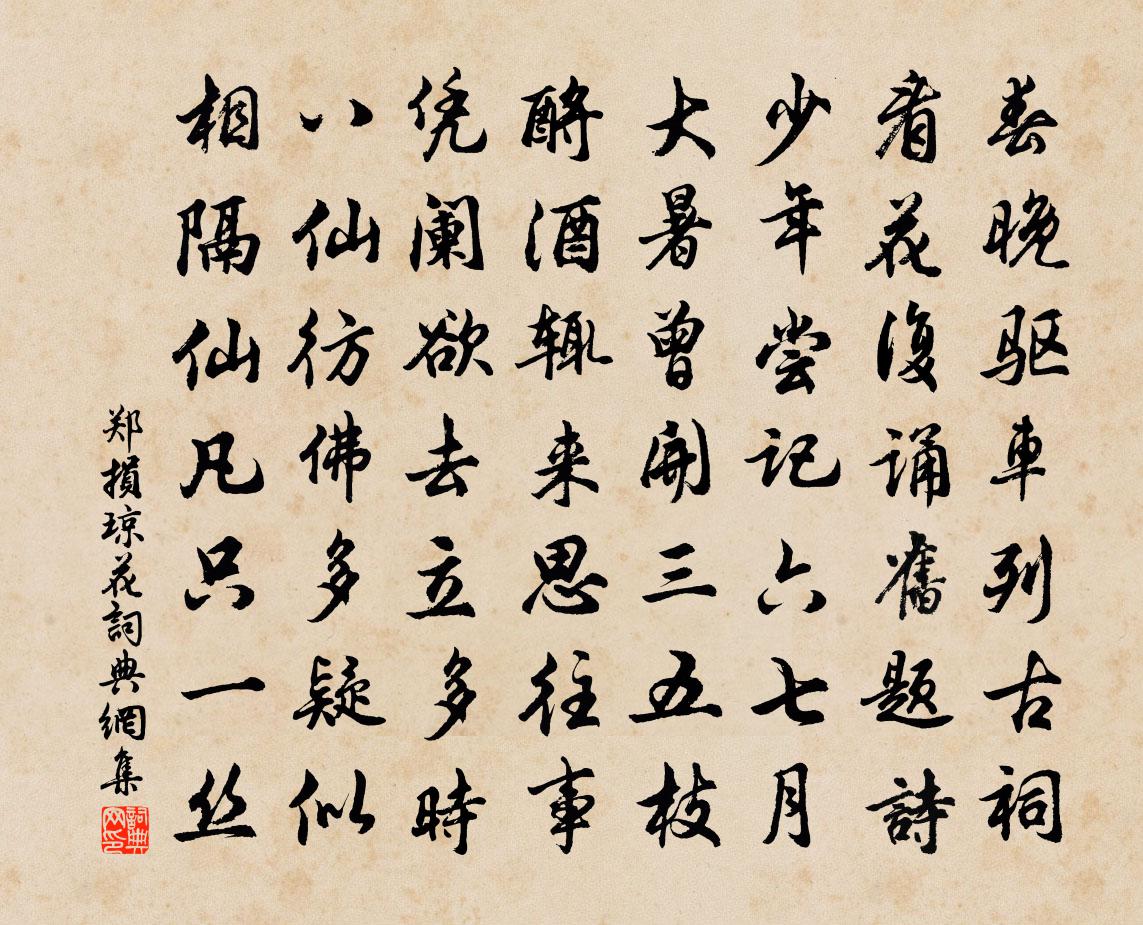 春晚驱車列古祠
看花復诵舊题詩
少年尝记六七月
大暑曾開三五枝
酹酒辄来思往事
凭阑欲去立多時
八仙彷佛多疑似
相隔仙凡只一丝
郑損琼花詞典網集
詞典网印